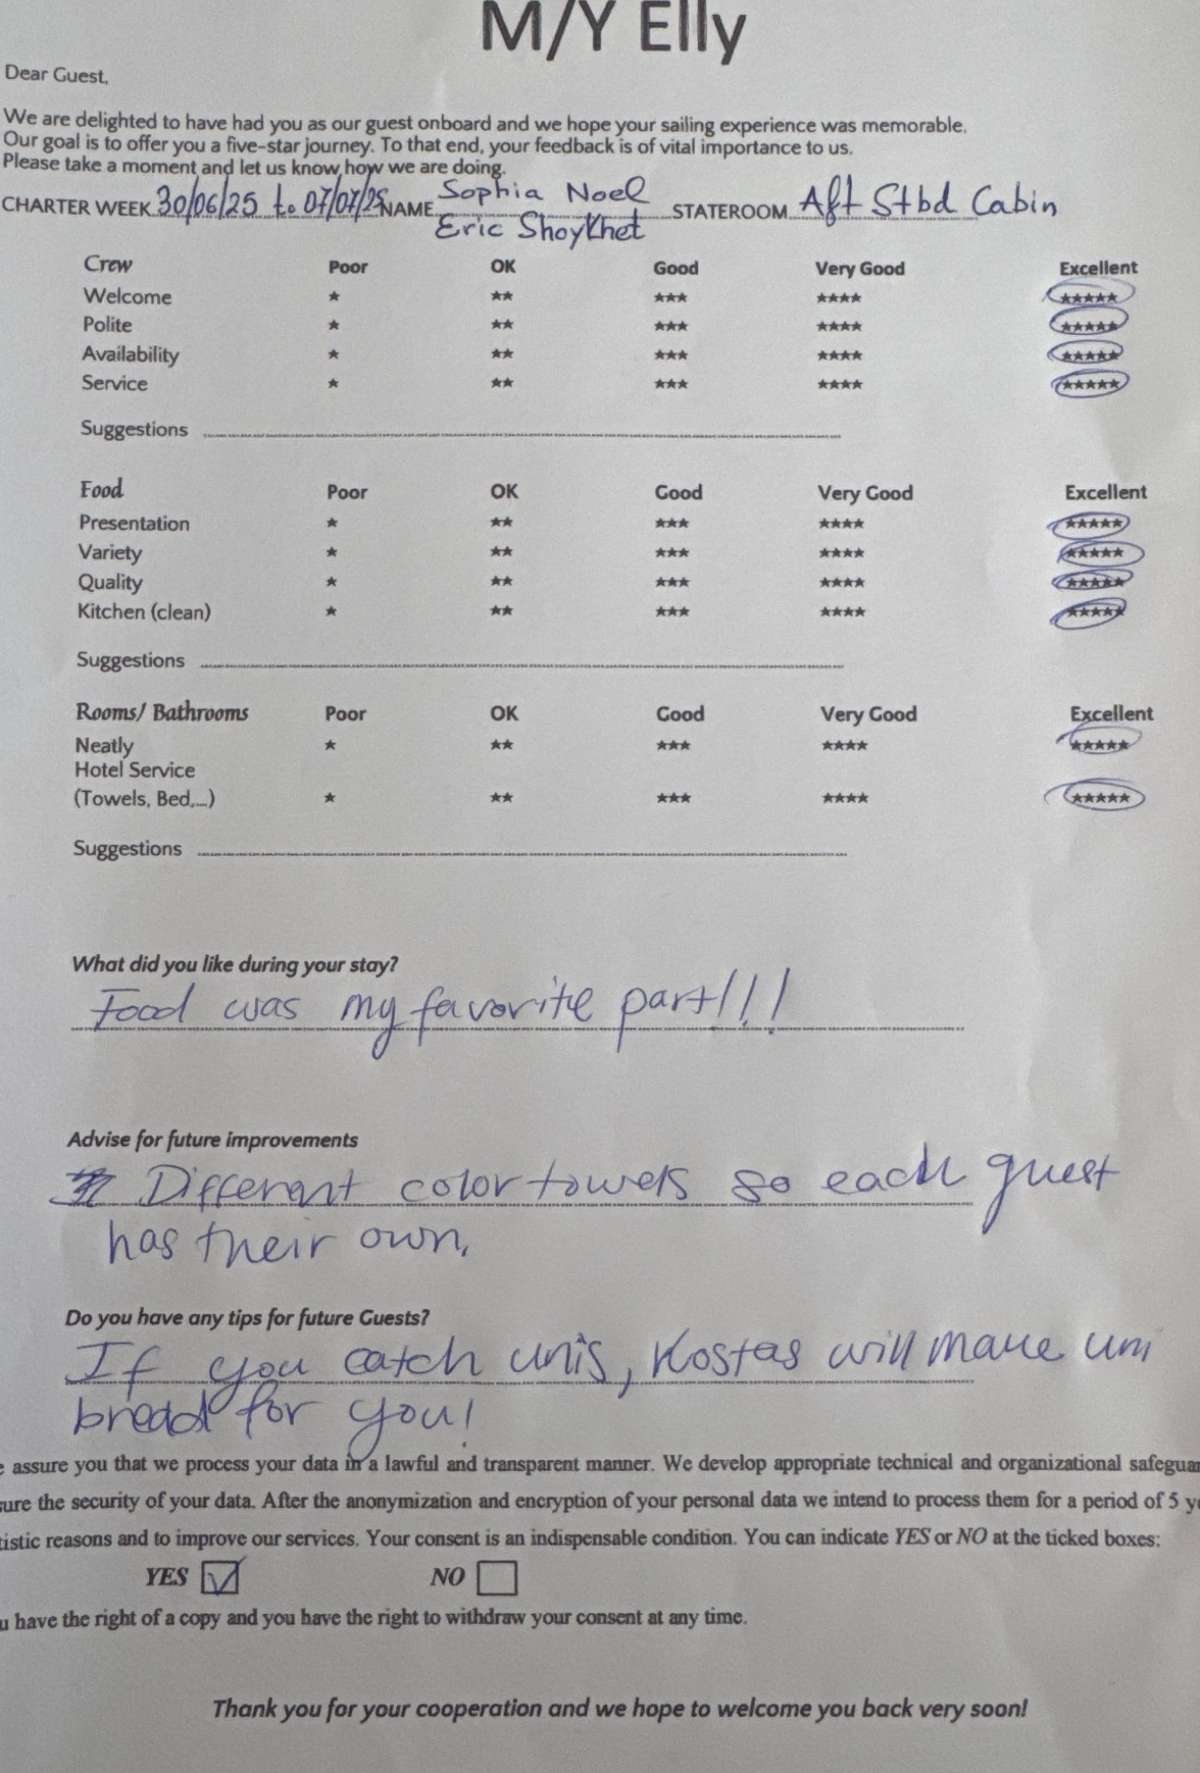 M/Y Elly
Dear Guest,
We are delighted to have had you as our guest onboard and we hope your sailing experience was memorable.
Our goal is to offer you a five-star journey. To that end, your feedback is of vital importance to us.
Please take a moment and let us know how we are doing.
CHARTER WEEK 30/06/25 to 07/07/25 NAME Sophia Noel STATEROOM Aft Stbd Cabin
Eric Shoykhet
Crew Poor OK Good Very Good Excellent
Welcome ★ ★★ ★★★ ★★★★ ★★★★★
Polite ★ ★★ ★★★ ★★★★ ★★★★★
Availability ★ ★★ ★★★ ★★★★ ★★★★★
Service ★ ★★ ★★★ ★★★★ ★★★★★
Suggestions
Food Poor OK Good Very Good Excellent
Presentation ★ ★★ ★★★ ★★★★ ★★★★★
Variety ★ ★★ ★★★ ★★★★ ★★★★★
Quality ★ ★★ ★★★ ★★★★ ★★★★★
Kitchen (clean) ★ ★★ ★★★ ★★★★ ★★★★★
Suggestions
Rooms/ Bathrooms Poor OK Good Very Good Excellent
Neatly ★ ★★ ★★★ ★★★★ ★★★★★
Hotel Service
(Towels, Bed,...) ★ ★★ ★★★ ★★★★ ★★★★★
Suggestions
What did you like during your stay?
Food was my favorite part!!!
Advise for future improvements
Different color towels so each guest
has their own.
Do you have any tips for future Guests?
If you catch unis, Kostas will make uni
bread for you!
e assure you that we process your data in a lawful and transparent manner. We develop appropriate technical and organizational safeguar
sure the security of your data. After the anonymization and encryption of your personal data we intend to process them for a period of 5 ye
tistic reasons and to improve our services. Your consent is an indispensable condition. You can indicate YES or NO at the ticked boxes:
YES NO
u have the right of a copy and you have the right to withdraw your consent at any time.
Thank you for your cooperation and we hope to welcome you back very soon!